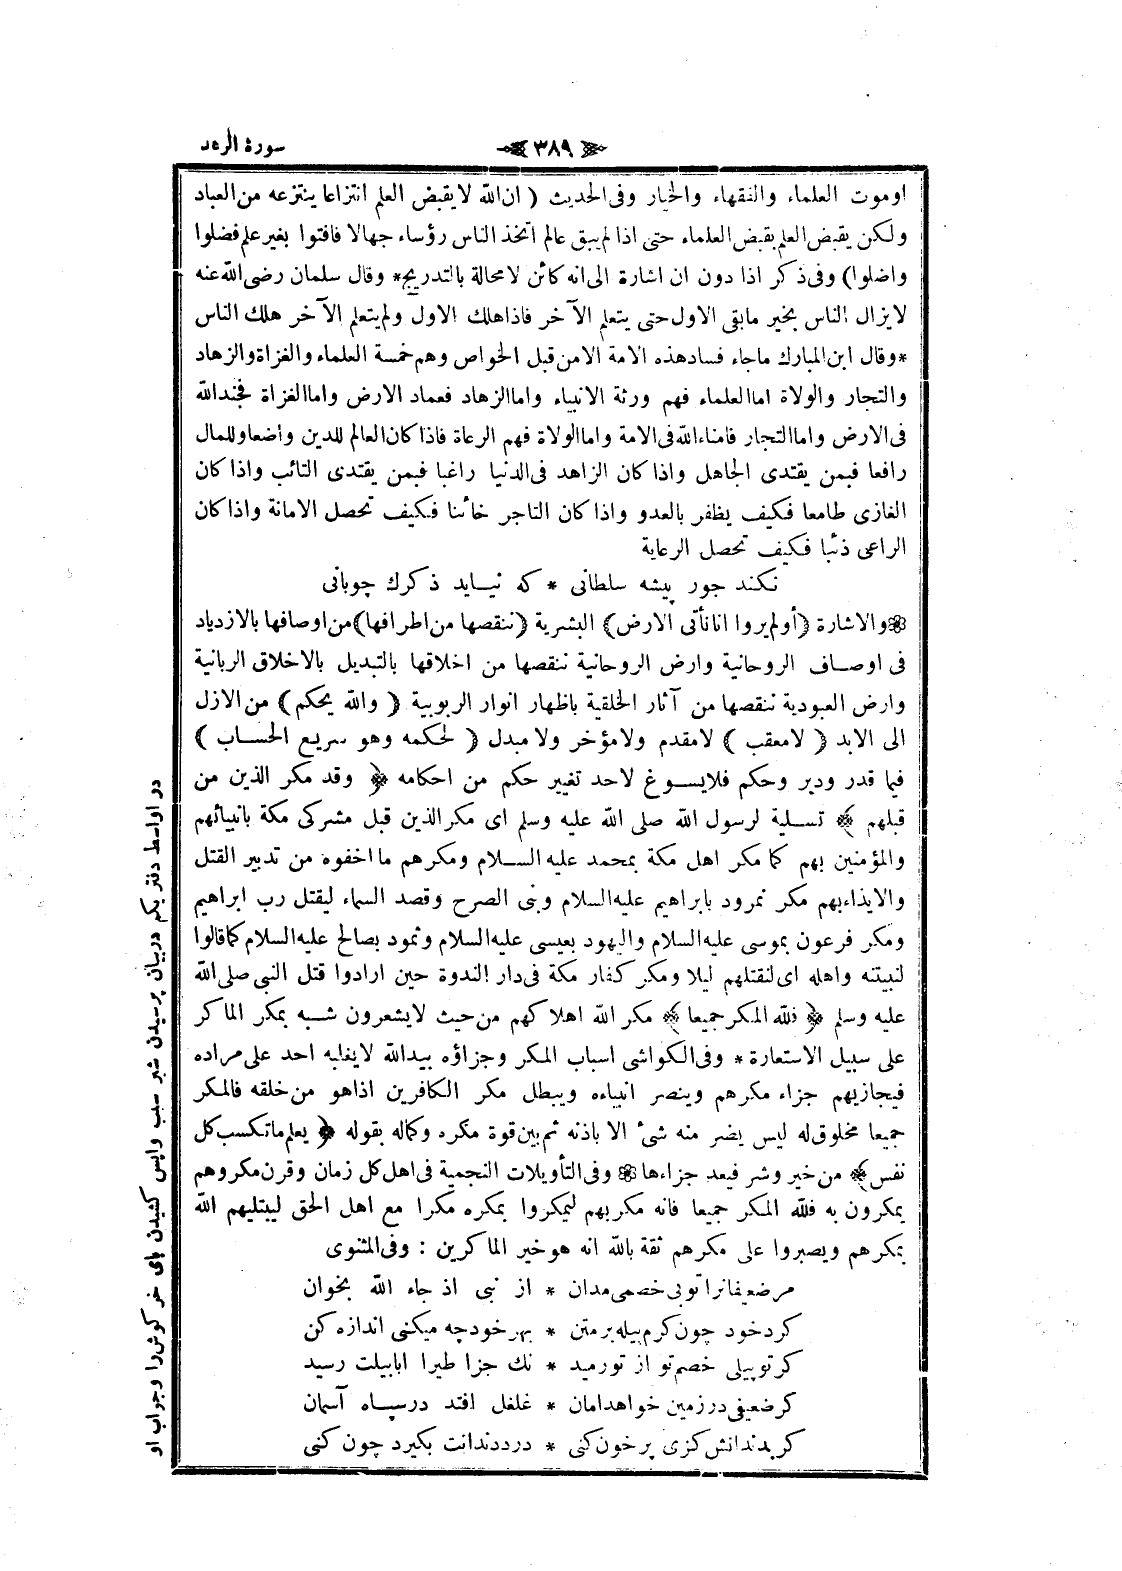 سورة الرعد
٣٨٩
اوموت العلماء والفقهاء والخيار وفى الحديث ( ان الله لايقبض العلم انتزاعا ينتزعه من العباد
ولكن يقبض العلم بقبض العلماء حتى اذا لم يبق عالم اتخذ الناس رؤساء جهالا فافتوا بغير علم فضلوا
واضلوا) وفى ذكر اذا دون ان اشارة الى انه كائن لا محالة بالتدريج * وقال سلمان رضى الله عنه
لايزال الناس بخير مابقى الاول حتى يتعلم الآخر فاذا هلك الاول ولم يتعلم الآخر هلك الناس
* وقال ابن المبارك ماجاء فساد هذه الامة الا من قبل الخواص وهم خمسة العلماء والغزاة والزهاد
والتجار والولاة اما العلماء فهم ورثة الانبياء واما الزهاد فعماد الارض واما الغزاة فجند الله
فى الارض واما التجار فامناء الله فى الامة واما الولاة فهم الرعاة فاذا كان العالم للدين واضعا وللمال
رافعا فبمن يقتدى الجاهل واذا كان الزاهد فى الدنيا راغبا فبمن يقتدى التائب واذا كان
الغازى طامعا فكيف يظفر بالعدو واذا كان التاجر خائنا فكيف تحصل الامانة واذا كان
الراعى ذئبا فكيف تحصل الرعاية
نكند جور پيشه سلطانى * كه نيايد ذكرك چوپانى
والاشارة (أولم يروا انا نأتى الارض) البشرية (ننقصها من اطرافها) من اوصافها بالازدياد
فى اوصاف الروحانية وارض الروحانية ننقصها من اخلاقها بالتبديل بالاخلاق الربانية
وارض العبودية ننقصها من آثار الخلقية باظهار انوار الربوبية ( والله يحكم ) من الازل
الى الابد ( لامعقب ) لامقدم ولامؤخر ولا مبدل ( لحكمه وهو سريع الحساب )
فيما قدر ودبر وحكم فلايسوغ لاحد تغيير حكم من احكامه ﴿ وقد مكر الذين من
قبلهم ﴾ تسلية لرسول الله صلى الله عليه وسلم اى مكر الذين قبل مشركى مكة بانبيائهم
والمؤمنين بهم كما مكر اهل مكة بمحمد عليه السلام ومكرهم ما اخفوه من تدبير القتل
والايذاء بهم مكر نمرود بابراهيم عليه السلام وبنى الصرح وقصد السماء ليقتل رب ابراهيم
ومكر فرعون بموسى عليه السلام واليهود بعيسى عليه السلام وثمود بصالح عليه السلام كما قالوا
لنبيتنه واهله اى لنقتلهم ليلا ومكر كفار مكة فى دار الندوة حين ارادوا قتل النبى صلى الله
عليه وسلم ﴿ فلله المكر جميعا ﴾ مكر الله اهلاكهم من حيث لايشعرون شبه بمكر الماكر
على سبيل الاستعارة * وفى الكواشى اسباب المكر وجزاؤه بيد الله لايغلبه احد على مراده
فيجازيهم جزاء مكرهم وينصر انبياءه ويبطل مكر الكافرين اذ هو من خلقه فالمكر
جميعا مخلوق له ليس يضر منه شئ الا باذنه ثم بين قوة مكره وكماله بقوله ﴿ يعلم ما تكسب كل
نفس ﴾ من خير وشر فيعد جزاءها وفى التأويلات النجمية فى اهل كل زمان وقرن مكر وهم
يمكرون به فلله المكر جميعا فانه مكر بهم ليمكروا بمكره مكرا مع اهل الحق ليبتليهم الله
بمكرهم ويصبروا على مكرهم ثقة بالله انه هو خير الماكرين : وفى المثنوى
مر ضعيفانرا تو بى خصمى مدان * از نبى اذ جاء الله بخوان
كرد خود چون كرم پيله بر متن * بهر خود چه ميكنى اندازه كن
كر تو پيلى خصم تو از تو رميد * نك جزا طيرا ابابيلت رسيد
كر ضعيفى در زمين خواهد امان * غلغل افتد در سپاه آسمان
كر بدندانش كزى پر خون كنى * درد دندانت بكيرد چون كنى
در اواسط دفتر يكم در بيان پرسيدن شير سبب واپس كشيدن پاى خر كوش را وجواب او